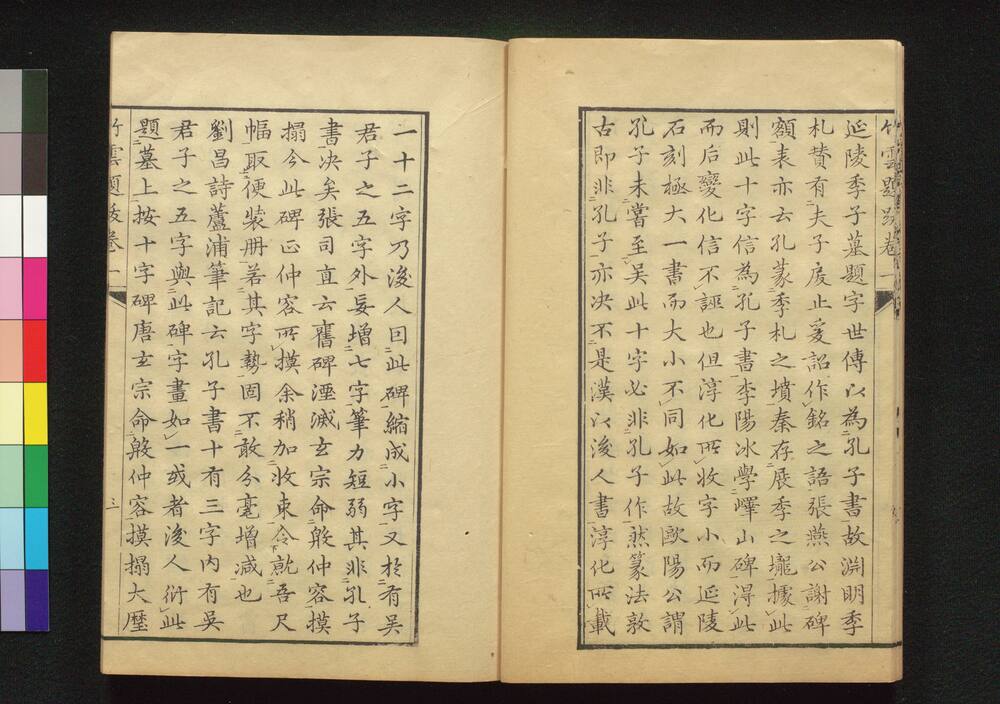 竹雲題跋卷一
延陵季子墓題字世傳以為孔子書故淵明季
札賛有夫子戾止爰詔作銘之語張燕公謝碑
額表亦云孔篆季札之墳秦存展季之壠據此
則此十字信為孔子書李陽冰學嶧山碑淂此
而后變化信不誣也但淳化所收字小而延陵
石刻極大一書而大小不同如此故歐陽公謂
孔子未嘗至吳此十字必非孔子作然篆法敦
古即非孔子亦决不是漢以後人書淳化所載
一十二字乃後人因此碑縮成小字又於有吳
君子之五字外妄增七字筆力短弱其非孔子
書决矣張司直云舊碑湮滅玄宗命殷仲容摸
搨今此碑正仲容所摸余稍加收束令就吾尺
幅取便裝册若其字勢固不敢分毫增减也
劉昌詩蘆浦筆記云孔子書十有三字内有吳
君子之五字與此碑字畫如一或者後人衍此
題墓上按十字碑唐玄宗命殷仲容摸搨大歷
竹雲題跋卷一
三